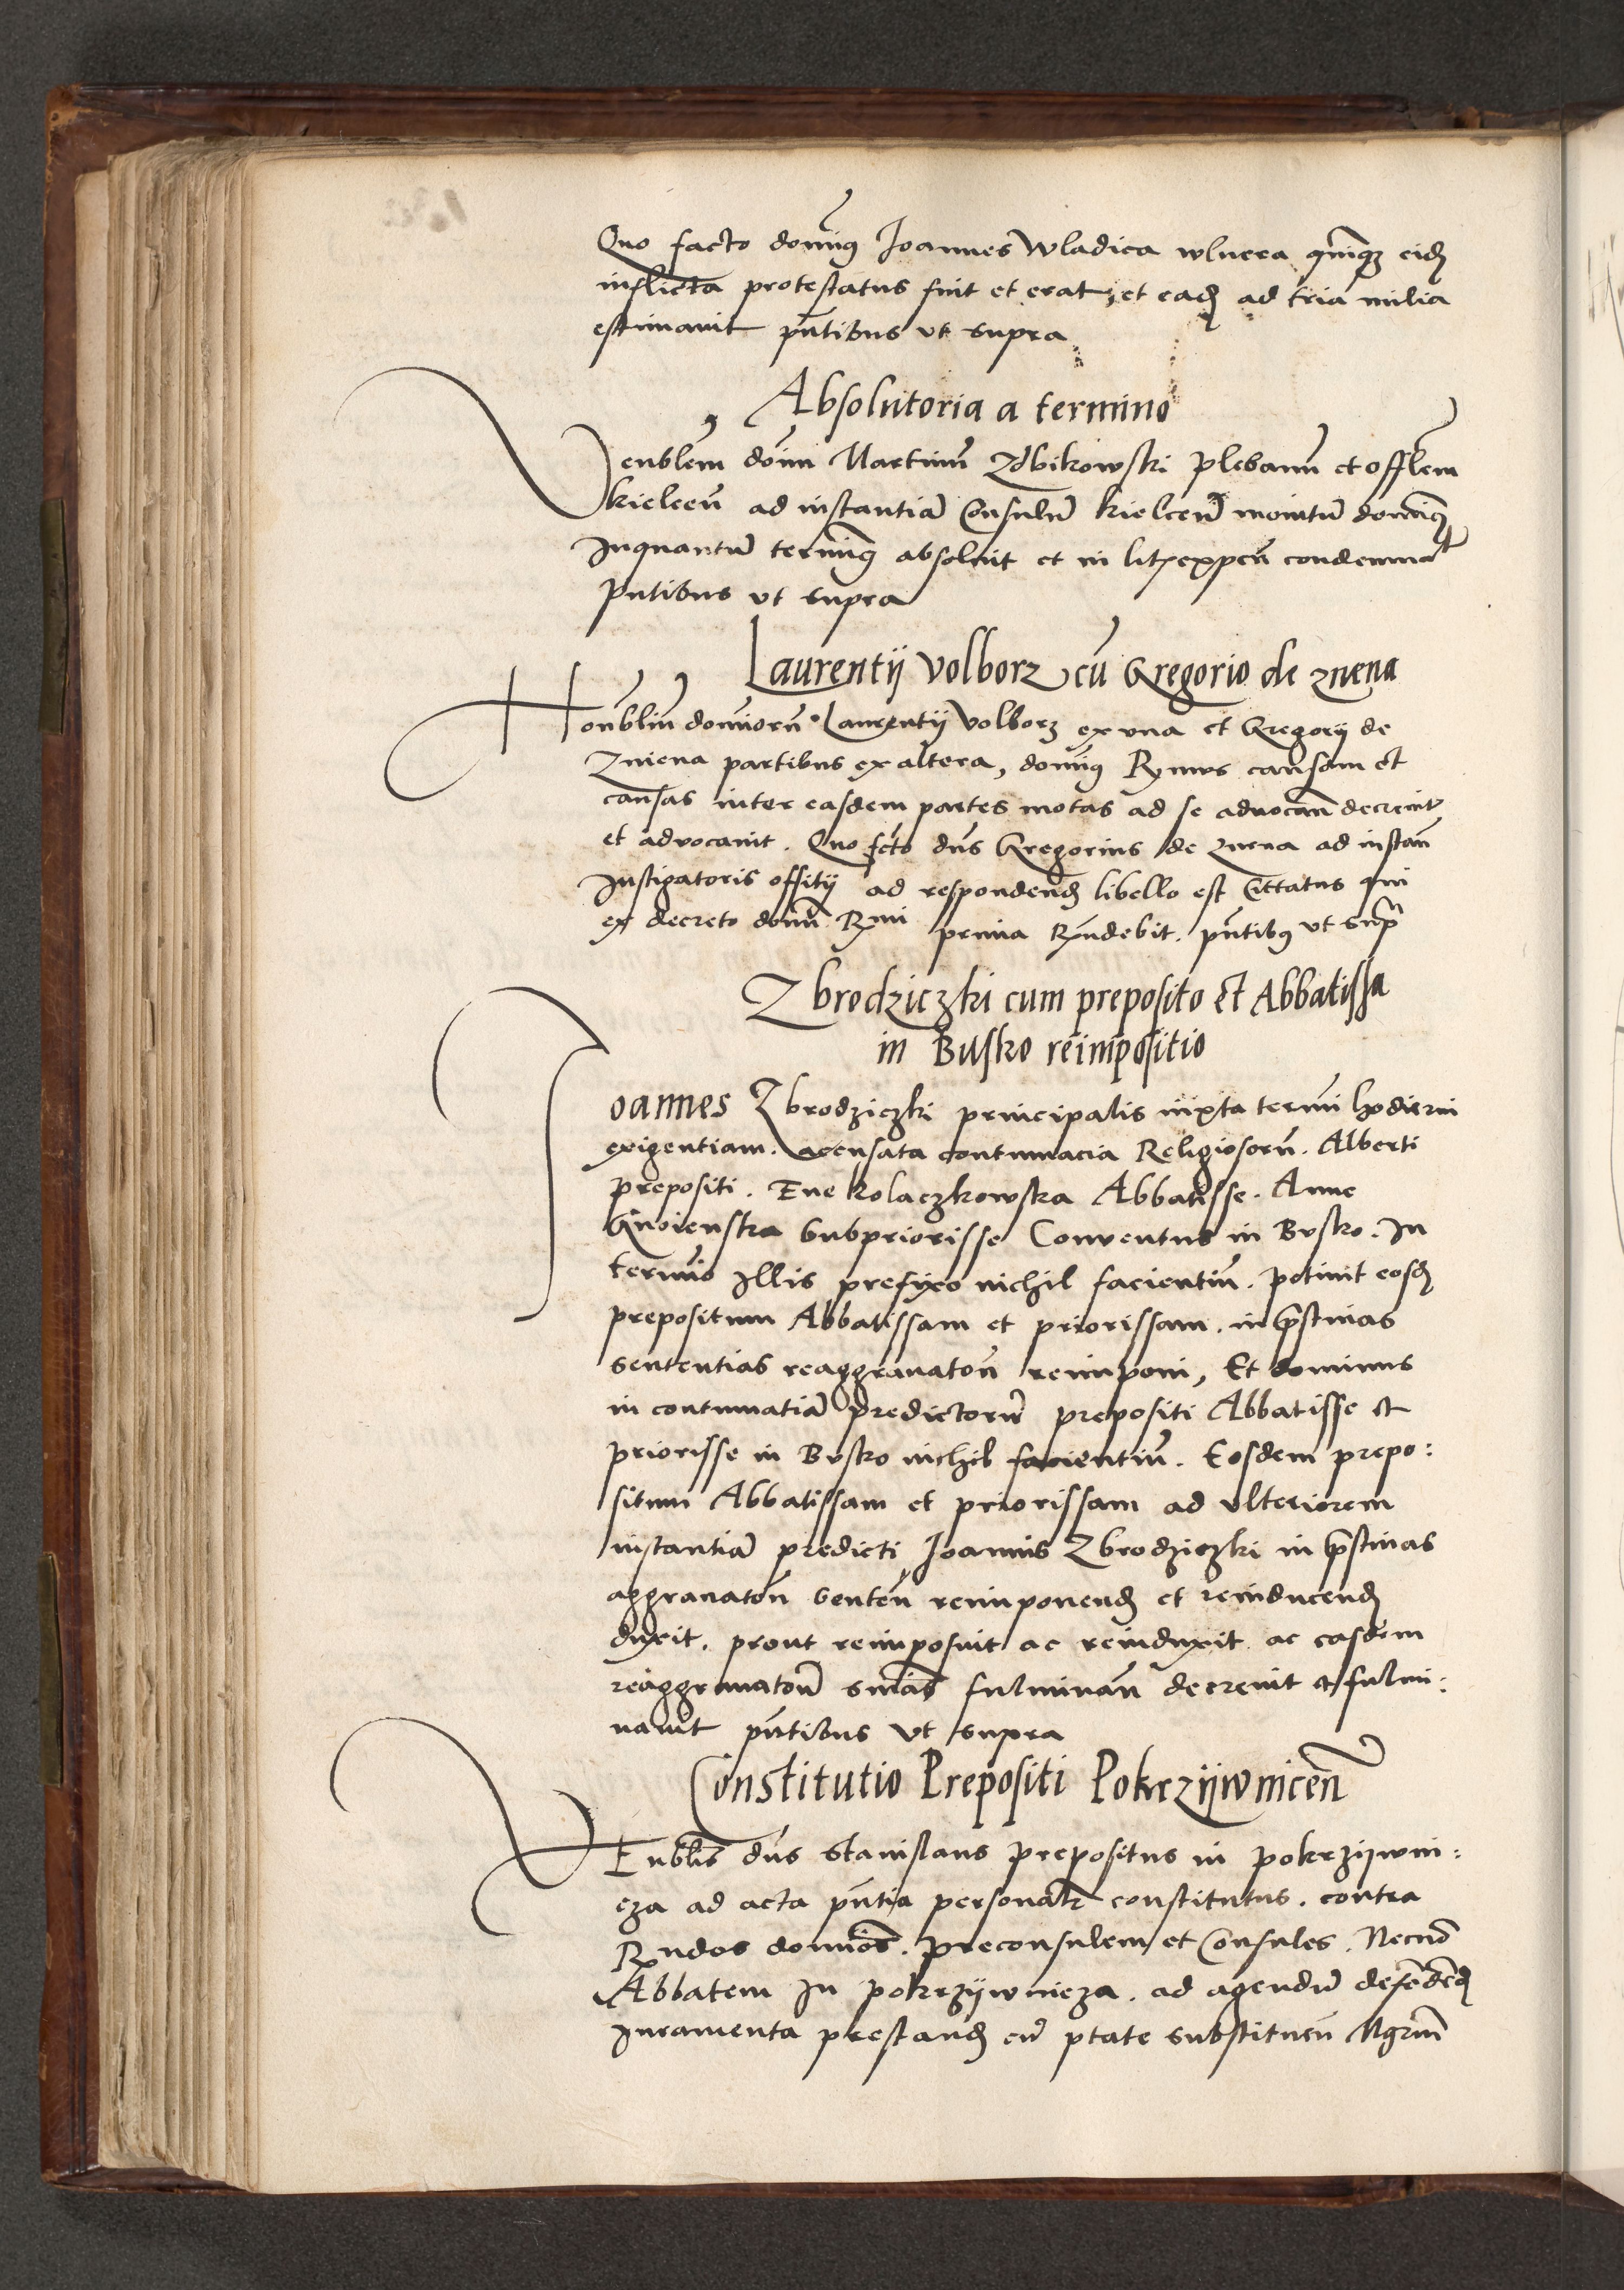 Quo facto dominꝰ Joannes Wladica wlnera quinqꝫ eidꝫ
inflicta protestatus fuit et erat et eadꝫ ad tria milia
estimauit pn̄tibus vt supra
Absolutoria a termino
Venblem̄ dōnu Martinū Zdbikowski plebanū et offlem̄
kielcen̄ ad instantiā Consulū kielcen̄ monitū dominꝰ
Inquantū terminꝰ absoluit et in litꝫ expen̄ condemnat
Pn̄tibus vt supra
Laurentij Volborz cū Gregorio de znena
Honbliū dominorū Laurentij Volborz ex vna et Gregorij de
Zniena partibus ex altera, dominꝰ Rmus causam et
causas inter easdem partes motas ad se aduocan̄ decreuit
et advocauit. Quo fcto dn̄s Gregorius de znena ad instan̄
Instigatoris offitij ad respondendꝫ libello est Cittatus qui
ex decreto domī Rmi prima Rn̄debit. pn̄tibꝰ vt supᵃ
Zbrodziczki cum preposito et Abbatissa
in Busko reimpositio
Joannes Zbrodziczki principalis iuxta termi hodierni
exigentiam. accusata contumacia Religiosorū. Alberti
prepositi. Eue kolaczkowska Abbatisse. Anne
Gnoienska Subpriorisse Conuentus in Busko. In
termīo Illis prefixo nichil facientiū. petiuit eosdꝫ
prepositum Abbatissam et priorissam. in pristinas
sententias reaggrauaton̄ reimponi, Et dominus
in contumatiā predictorū prepositi Abbatisse et
priorisse in Busko nichil facientiū. Eosdem prepo:
situm Abbatissam et priorissam ad vlteriorem
instantiā predicti Joannis Zbrodziczki in pristinas
aggrauaton̄ senten̄ reimponendꝫ et reinducendꝫ
duxit. prout reimposuit ac reinduxit ac easdem
reaggrauaton̄ sn̄ias fulminan̄ decreuit et fulmi:
nauit pn̄tibus vt supra
Constitutio Prepositi Pokrzijwnicen̄
VEnblis dn̄s Stanislaus prepositus in pokrzijwni:
cza ad acta pn̄tia personalr̄ constitutus. contra
Rndos domios. preconsulem et Consules. Necnō
Abbatem In pokrzijwnicza. ad agendū defendēdꝫ
Iuramenta prestandꝫ cū ptate substituen̄ Mgrm̄